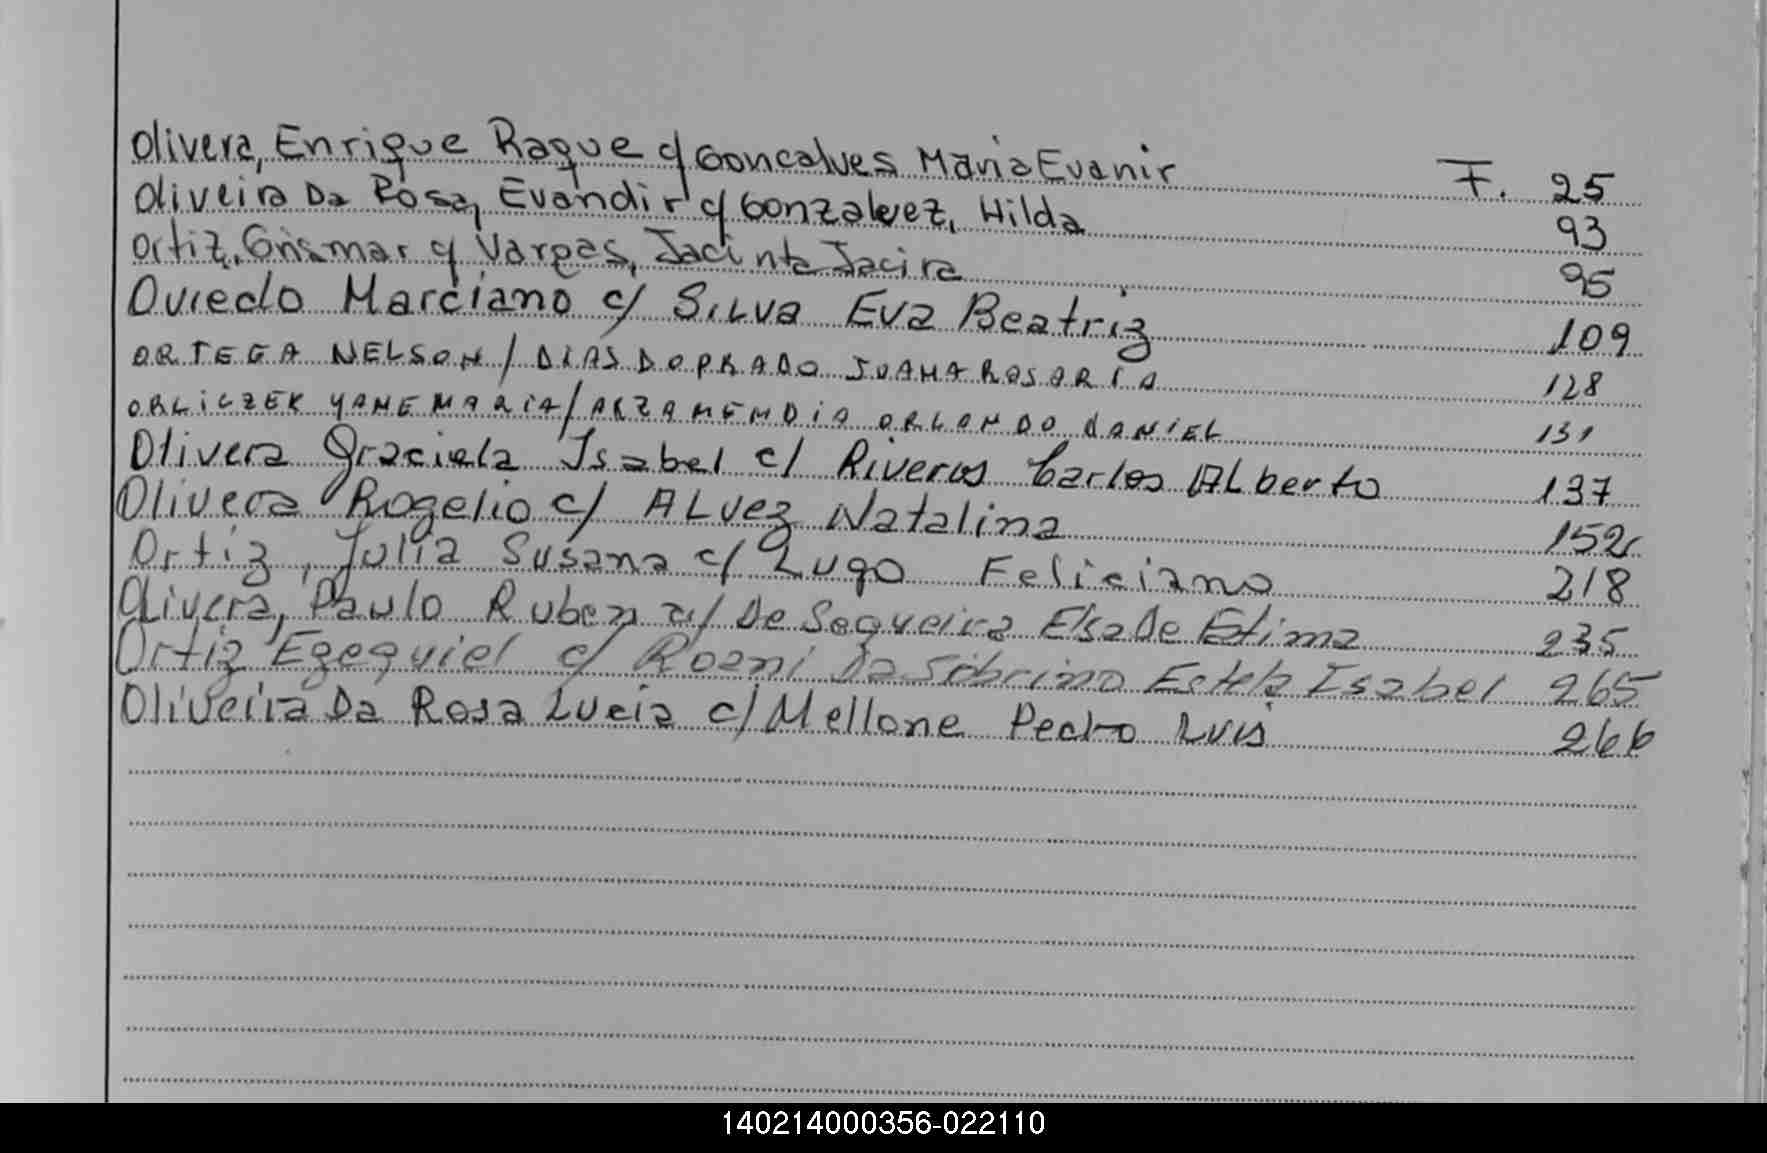 Olivera, Enrique Raque c/ Goncalves Maria Evanir F. 25
Oliveira Da Rosa, Evandir c/ Gonzalvez, Hilda 93
Ortiz, Grismar c/ Vargas, Jacinta Jacira 95
Oviedo Marciano c/ Silva Eva Beatriz 109
ORTEGA NELSON / DIAS DO PRADO JUANA ROSARIA 128
ORLICZEK YANE MARIA / ARZAMENDIA ORLANDO DANIEL 131
Olivera Graciela Isabel c/ Riveros Carlos Alberto 137
Olivera Rogelio c/ Alvez Natalina 152
Ortiz, Julia Susana c/ Lugo Feliciano 218
Olivera, Paulo Ruben c/ De Sequeira Elsa De Fatima 235
Ortiz Ezequiel c/ Da Sobrino Estela Isabel 265
Oliveira Da Rosa Lucia c/ Mellone Pedro Luis 266
140214000356-022110